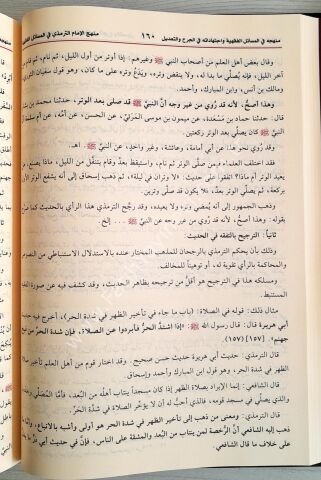 منهجه في المسائل الفقهية واجتهاداته في الجرح والتعديل
١٦٠
منهج الإمام الترمذي في المسائل
وقال بعض أهل العلم من أصحاب النبي ﷺ وغيرهم: إذا أوتر من أول الليل، ثم نام، ثم قام من
آخر الليل، فإنه يصلي ما بدا له، ولا ينقض وتره، ويدع وتره على ما كان، وهو قول سفيان
ومالك بن أنس، وابن المبارك، وأحمد.
وهذا أصح، لأنه قد روي من غير وجه أن النبي ﷺ قد صلى بعد الوتر، حدثنا محمد بن
قال: حدثنا حماد بن مسعدة، عن ميمون بن موسى المرئي، عن الحسن، عن أمه، عن أم سلمة
النبي ﷺ كان يصلي بعد الوتر ركعتين.
وقد روي نحو هذا: عن أبي أمامة، وعائشة، وغير واحد، عن النبي ﷺ. اهـ.
فقد اختلف العلماء فيمن صلى الوتر ثم نام، واستيقظ بعدُ وقام يتنفل من الليل، ماذا
يعيد الوتر أم ماذا؟ اتفقوا على حديث: «لا وتران في ليلة»، ثم ذهب إسحاق إلى أنه يشفع الوتر
بركعة، ثم يصلي الوتر بعدُ، فلا يكون قد صلى وترين.
وذهب الجمهور إلى أنه يمضي وتره ولا يعيده، وقد رجّح الترمذي هذا الرأي بالحديث كما
بقوله: وهذا أصح، لأنه قد روي من غير وجه عن النبي ﷺ ... إلخ.
ثانياً: الترجيح بالتفقه في الحديث:
وذلك بأن يحكم الترمذي بالرجحان للمذهب المختار عنده بالاستدلال الاستنباطي من النصوص
والمحاكمة بالرأي تقوية له، أو توهيناً للمخالف.
ومسلكه هذا في الترجيح هو أقل من ترجيحه بظاهر الحديث، وقد كشف فيه عن صورة الفقه
المستنبط.
مثال ذلك: قوله في الصلاة: (باب ما جاء في تأخير الظهر في شدة الحر)، أخرج فيه
أبي هريرة قال: قال رسول الله ﷺ: «إذا اشتد الحر فأبردوا عن الصلاة، فإن شدة الحر من فيح
جهنم». [١٥٧] (١٥٧)
قال الترمذي: حديث أبي هريرة حديث حسن صحيح. وقد اختار قوم من أهل العلم تأخير
الظهر في شدة الحر، وهو قول ابن المبارك وأحمد وإسحاق.
قال الشافعي: إنما الإبراد بصلاة الظهر إذا كان مسجداً ينتاب أهله من البعد، فأما المصلي
والذي يصلي في مسجد قومه، فالذي أحب له أن لا يؤخر الصلاة في شدة الحر.
قال الترمذي: ومعنى من ذهب إلى تأخير الظهر في شدة الحر هو أولى وأشبه بالاتباع،
ذهب إليه الشافعي أن الرخصة لمن ينتاب من البعد والمشقة على الناس، فإن في حديث أبي
على خلاف ما قال الشافعي